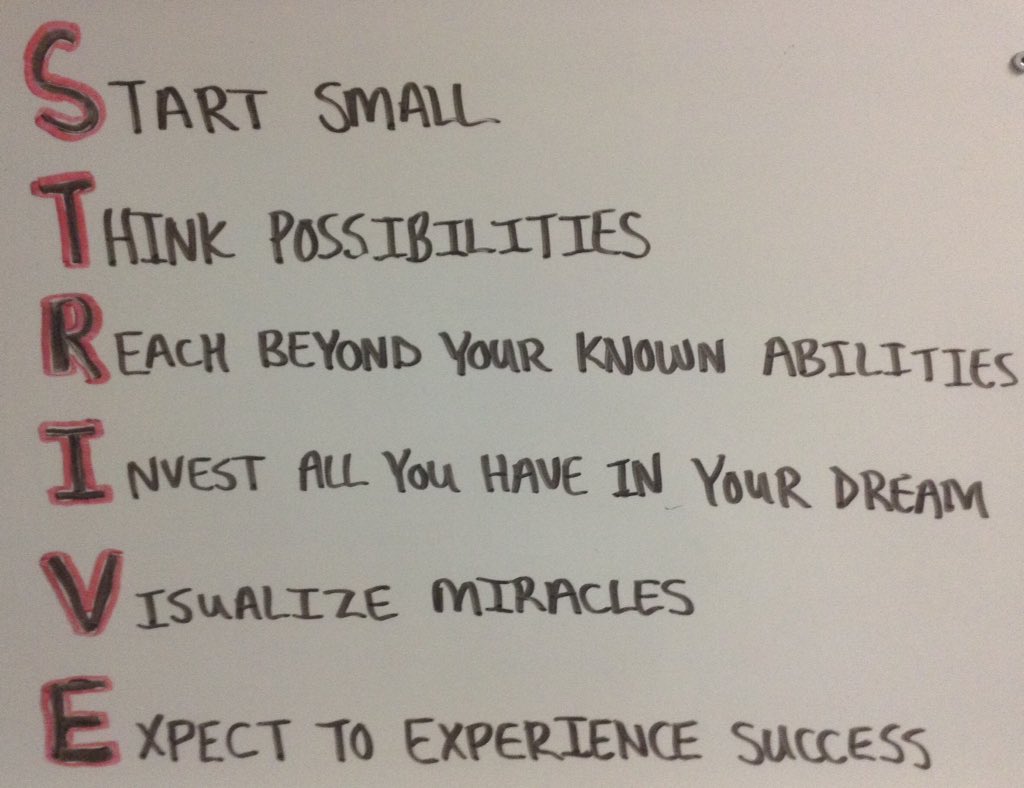 START SMALL
THINK POSSIBILITIES
REACH BEYOND YOUR KNOWN ABILITIES
INVEST ALL YOU HAVE IN YOUR DREAM
VISUALIZE MIRACLES
EXPECT TO EXPERIENCE SUCCESS